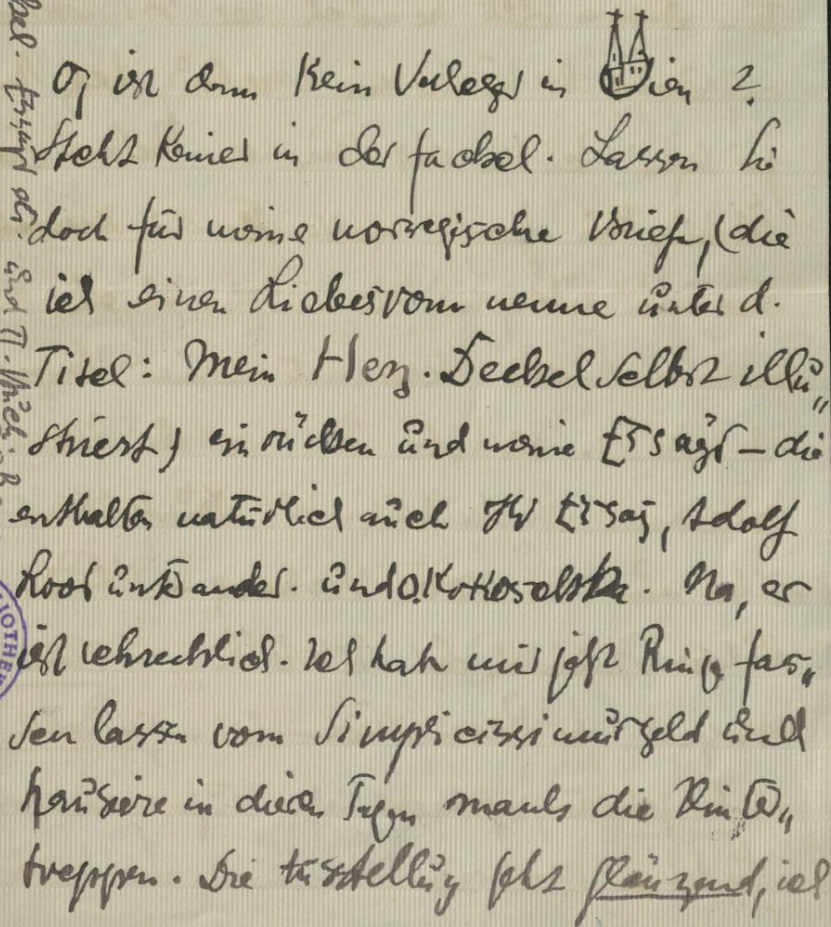 O, ist denn kein Verleger in Wien ?
Steht keiner in der Fackel. Lassen Sie
doch für meine norwegische Briefe, (die
ich einen Liebesrom nenne unter d.
Titel: Mein Herz. Deckel selbst illu„
striert) einrücken und meine Essays – die
enthalten natürlich auch Ihr Essay, Adolf
Loos unter ander. und O. Kokoschka. Na, er
ist schrecklich. Ich habe mir jetzt Ringe fas„
sen lassen vom Simplicissimusgeld und
hausiere in diesen Tagen die Hinter„
treppen. Die Ausstellung geht glänzend, ich
IOTHE